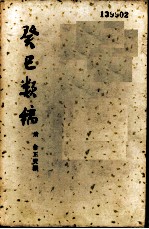 139902
癸巳類稿
清 俞正燮